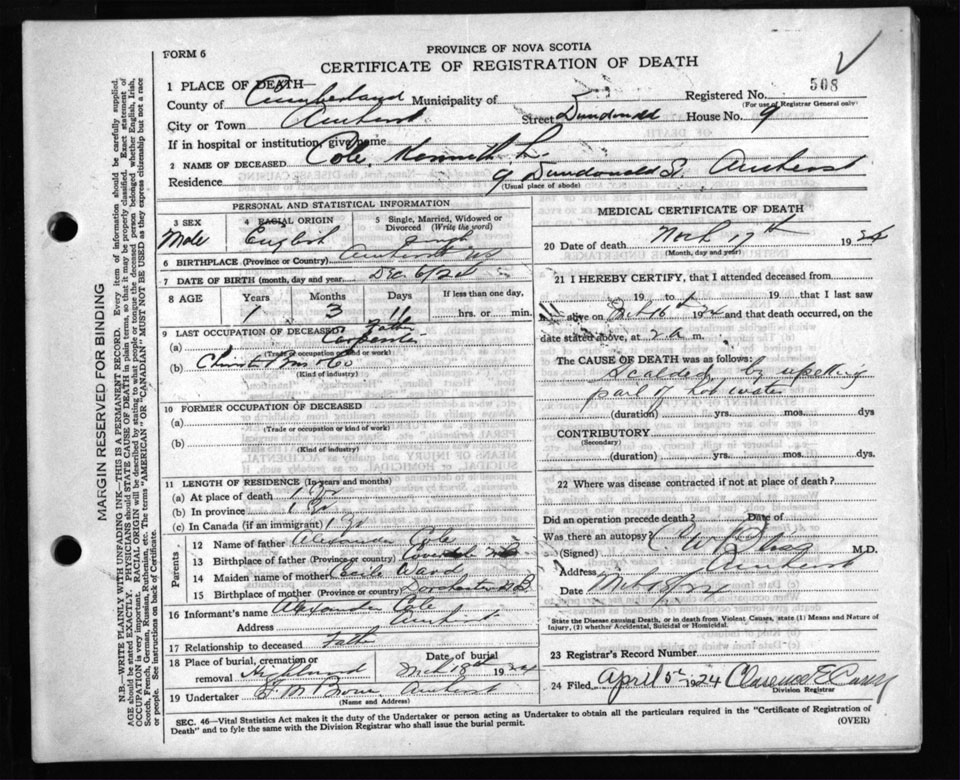 FORM 6
PROVINCE OF NOVA SCOTIA
CERTIFICATE OF REGISTRATION OF DEATH
1 PLACE OF DEATH
Registered No. 508
(For use of Registrar General only)
County of Cumberland Municipality of
City or Town Amherst Street Dundonald House No. 9
If in hospital or institution, give name
2 NAME OF DECEASED Cole, Kenneth L.
Residence 9 Dundonald St. Amherst
(Usual place of abode)
PERSONAL AND STATISTICAL INFORMATION
3 SEX Male
4 RACIAL ORIGIN English
5 Single, Married, Widowed or Divorced (Write the word) Single
6 BIRTHPLACE (Province or Country) Amherst NS
7 DATE OF BIRTH (month, day and year) Dec 6/22
8 AGE Years Months Days If less than one day,
1 3 11 hrs. or min.
9 LAST OCCUPATION OF DECEASED Father
(a) Carpenter
(Trade or occupation or kind of work)
(b) Christie Bros & Co
(Kind of industry)
10 FORMER OCCUPATION OF DECEASED
(a)
(Trade or occupation or kind of work)
(b)
(Kind of industry)
11 LENGTH OF RESIDENCE (In years and months)
(a) At place of death 1 Yr
(b) In province 1 Yr
(c) In Canada (if an immigrant) 1 Yr
Parents
12 Name of father Alexander Cole
13 Birthplace of father (Province or country) N B
14 Maiden name of mother Ward
15 Birthplace of mother (Province or country) Dorchester N.B
16 Informant's name Alexander Cole
Address Amherst
17 Relationship to deceased Father
18 Place of burial, cremation or removal Highland
Date of burial Mch 18th 1924
19 Undertaker Amherst
(Name and Address)
MEDICAL CERTIFICATE OF DEATH
20 Date of death Mch 17th 1924
(Month, day and year)
21 I HEREBY CERTIFY, that I attended deceased from
19 to 19 that I last saw
alive on Mch 16th 1924 and that death occurred, on the
date stated above, at 2 a m.
The CAUSE OF DEATH was as follows:
Scalded by upsetting
pail of hot water
(duration) yrs. mos. dys
CONTRIBUTORY
(Secondary)
(duration) yrs. mos. dys.
22 Where was disease contracted if not at place of death?
Did an operation precede death? Date of
Was there an autopsy?
(Signed) M.D.
Address Amherst
Date
State the Disease causing Death, or in death from Violent Causes, state (1) Means and Nature of Injury, (2) whether Accidental, Suicidal or Homicidal.
23 Registrar's Record Number
24 Filed April 5th 1924 Clarence E Casey
Division Registrar
SEC. 46—Vital Statistics Act makes it the duty of the Undertaker or person acting as Undertaker to obtain all the particulars required in the "Certificate of Registration of
Death" and to fyle the same with the Division Registrar who shall issue the burial permit. (OVER)
MARGIN RESERVED FOR BINDING
N.B.—WRITE PLAINLY WITH UNFADING INK—THIS IS A PERMANENT RECORD. Every item of information should be carefully supplied.
AGE should be stated EXACTLY. PHYSICIANS should STATE CAUSE OF DEATH in plain terms, so that it may be properly classified. Exact statement of
OCCUPATION is very important. RACIAL ORIGIN will be described by stating to what people or tongue the deceased person belonged whether English, Irish,
Scotch, French, German, Russian, Ruthenian, etc. The terms "AMERICAN" OR "CANADIAN" MUST NOT BE USED as they express citizenship but not a race
or people. See instructions on back of Certificate.